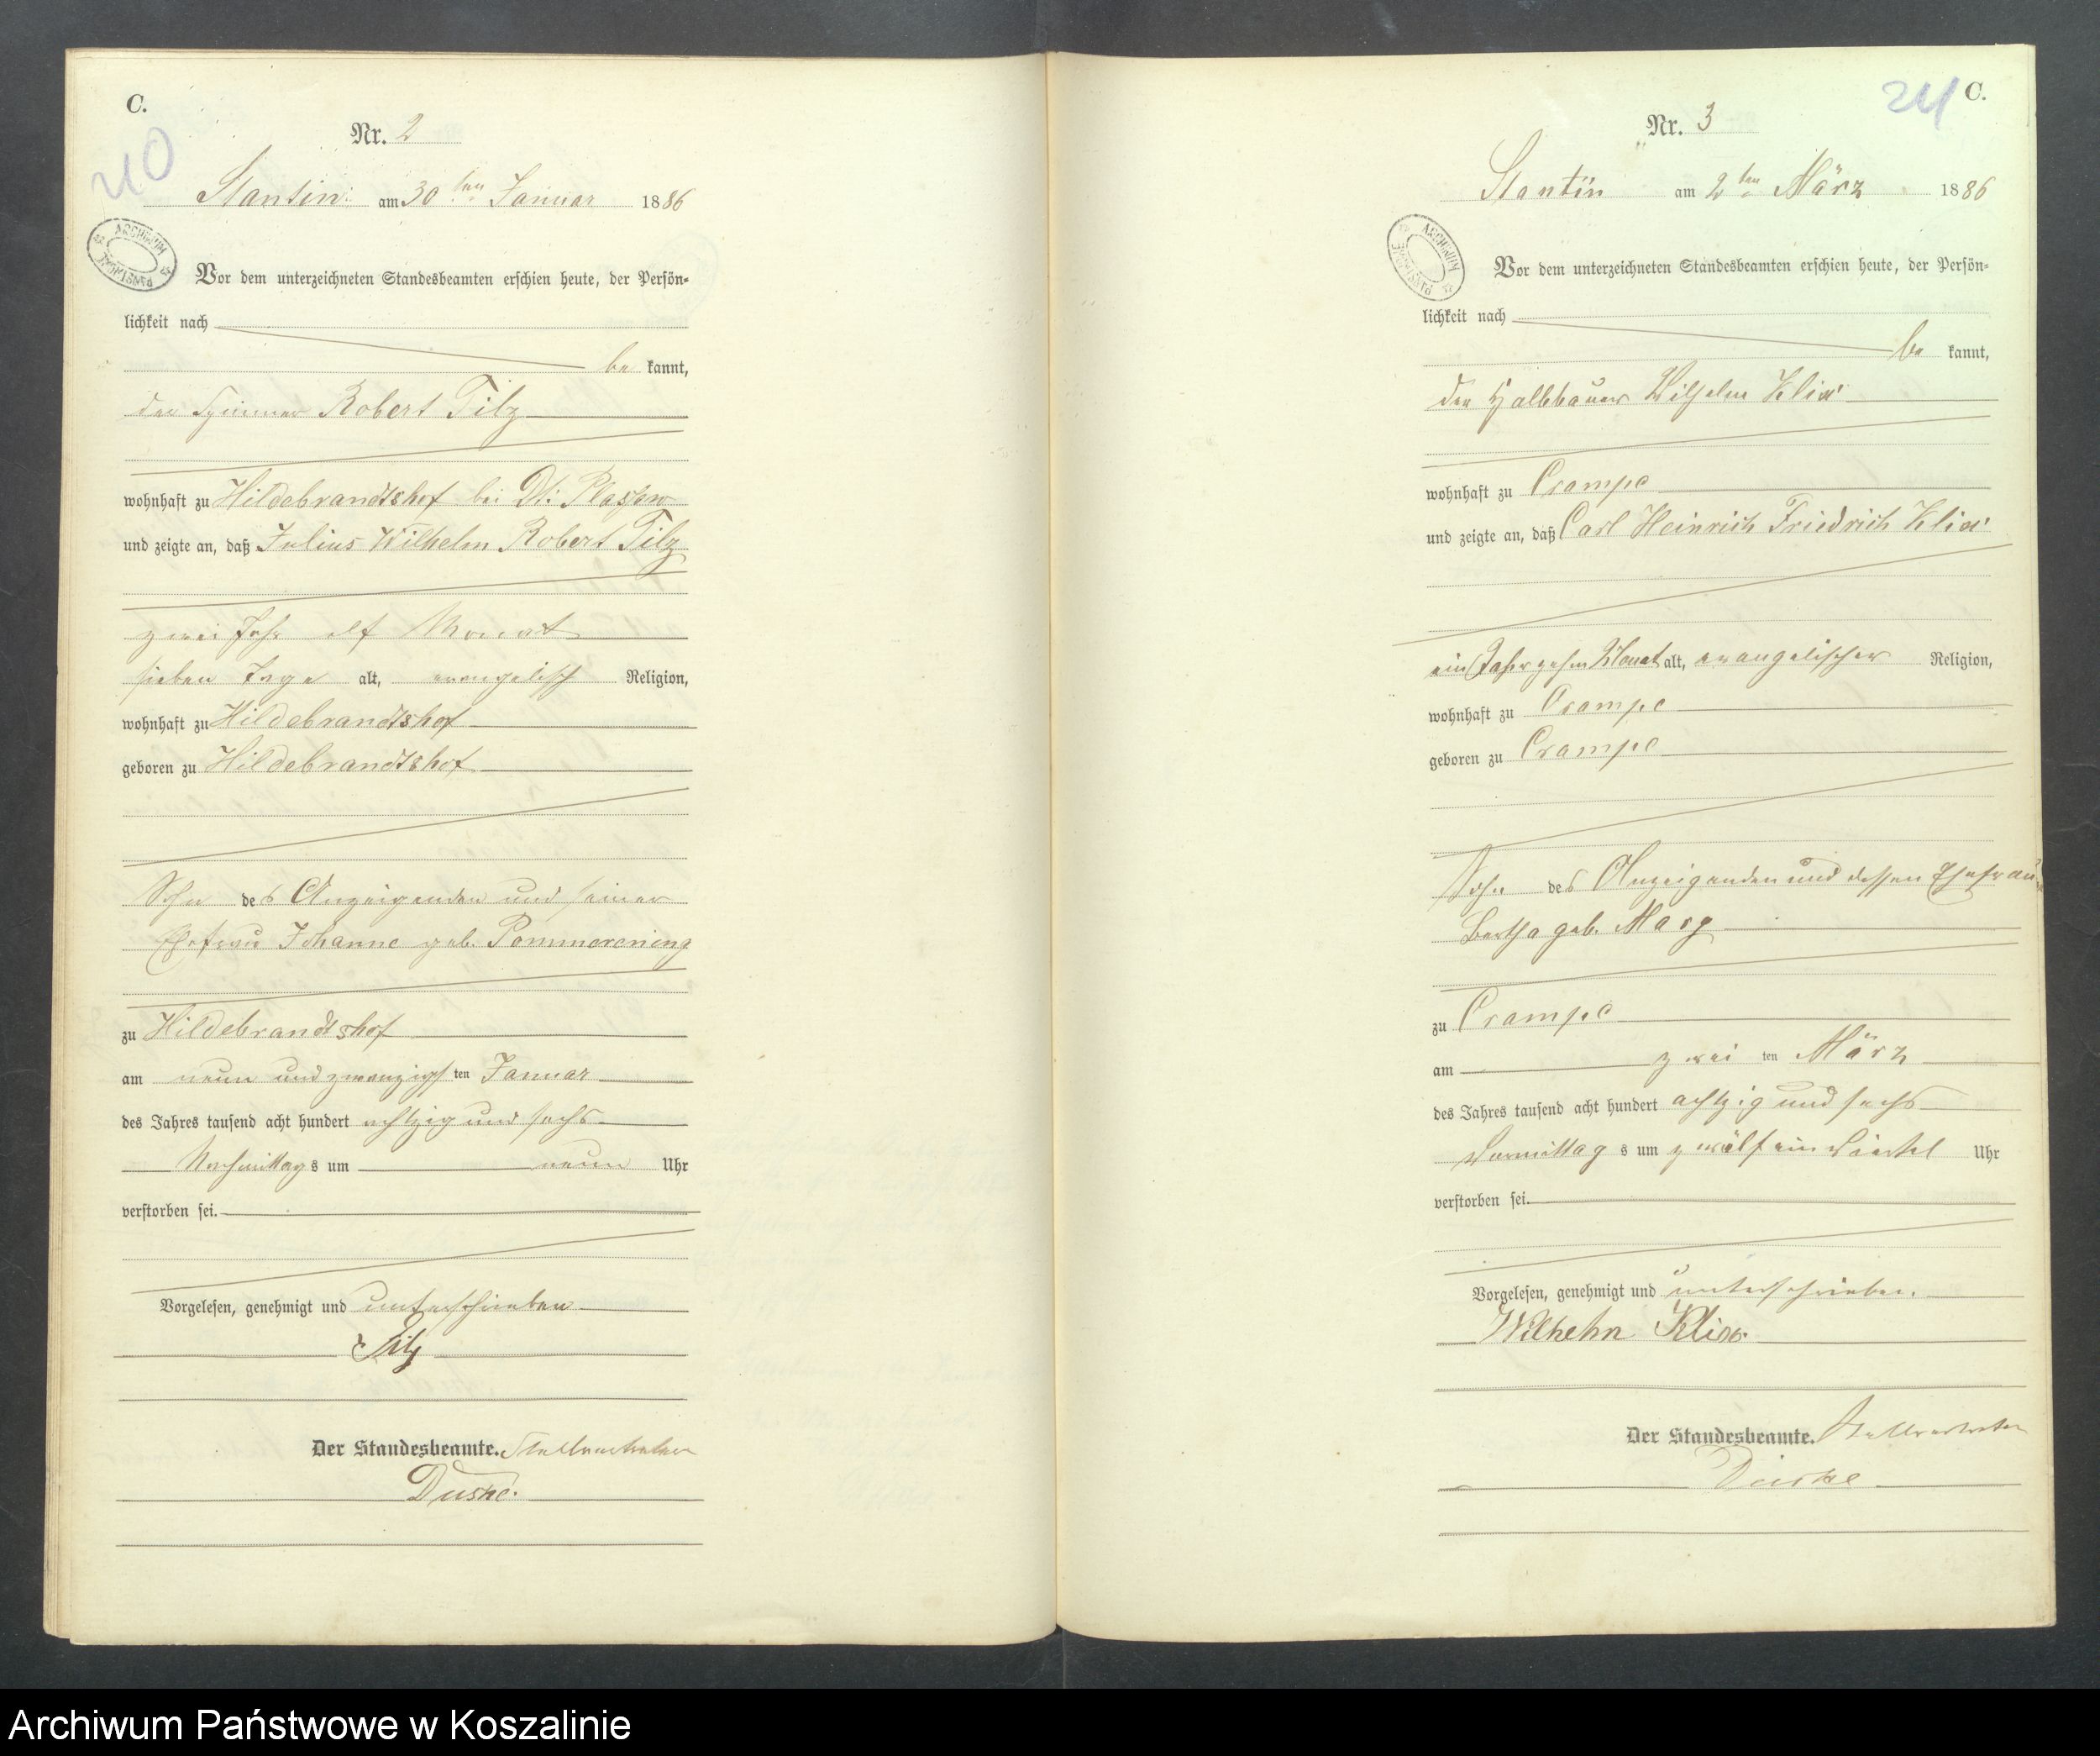 C.
40
Nr. 2
Stantin am 30ten Januar 1886
ARCHIWUM PAŃSTWOWE
Vor dem unterzeichneten Standesbeamten erschien heute, der Persön-
lichkeit nach
be kannt,
der Spinner Robert Tilz
wohnhaft zu Hildebrandtshof bei Dt: Plassow
und zeigte an, daß Julius Wilhelm Robert Tilz
zwei Jahr elf Monat
sieben Tage alt, evangelisch Religion,
wohnhaft zu Hildebrandtshof
geboren zu Hildebrandtshof
Sohn des Anzeigenden und seiner
Ehefrau Johanne geb. Pommerening
zu Hildebrandtshof
am neun und zwanzigsten Januar
des Jahres tausend acht hundert achtzig und sechs
Nachmittags um neun Uhr
verstorben sei.
Vorgelesen, genehmigt und unterschrieben
Tilz
Der Standesbeamte. Stellvertreter
24 C.
Nr. 3
Stantin am 2ten März 1886
ARCHIWUM PAŃSTWOWE
Vor dem unterzeichneten Standesbeamten erschien heute, der Persön-
lichkeit nach
be kannt,
der Halbbauer Wilhelm Klix
wohnhaft zu Crampe
und zeigte an, daß Carl Heinrich Friedrich Klix
ein Jahr zehn Monat alt, evangelischer Religion,
wohnhaft zu Crampe
geboren zu Crampe
Sohn des Anzeigenden und dessen Ehefrau
Bertha geb. Marg
zu Crampe
am zwei ten März
des Jahres tausend acht hundert achtzig und sechs
Vormittag s um zwölf ein Viertel Uhr
verstorben sei.
Vorgelesen, genehmigt und unterschrieben.
Wilhelm Klix.
Der Standesbeamte. Stellvertreter
Archiwum Państwowe w Koszalinie